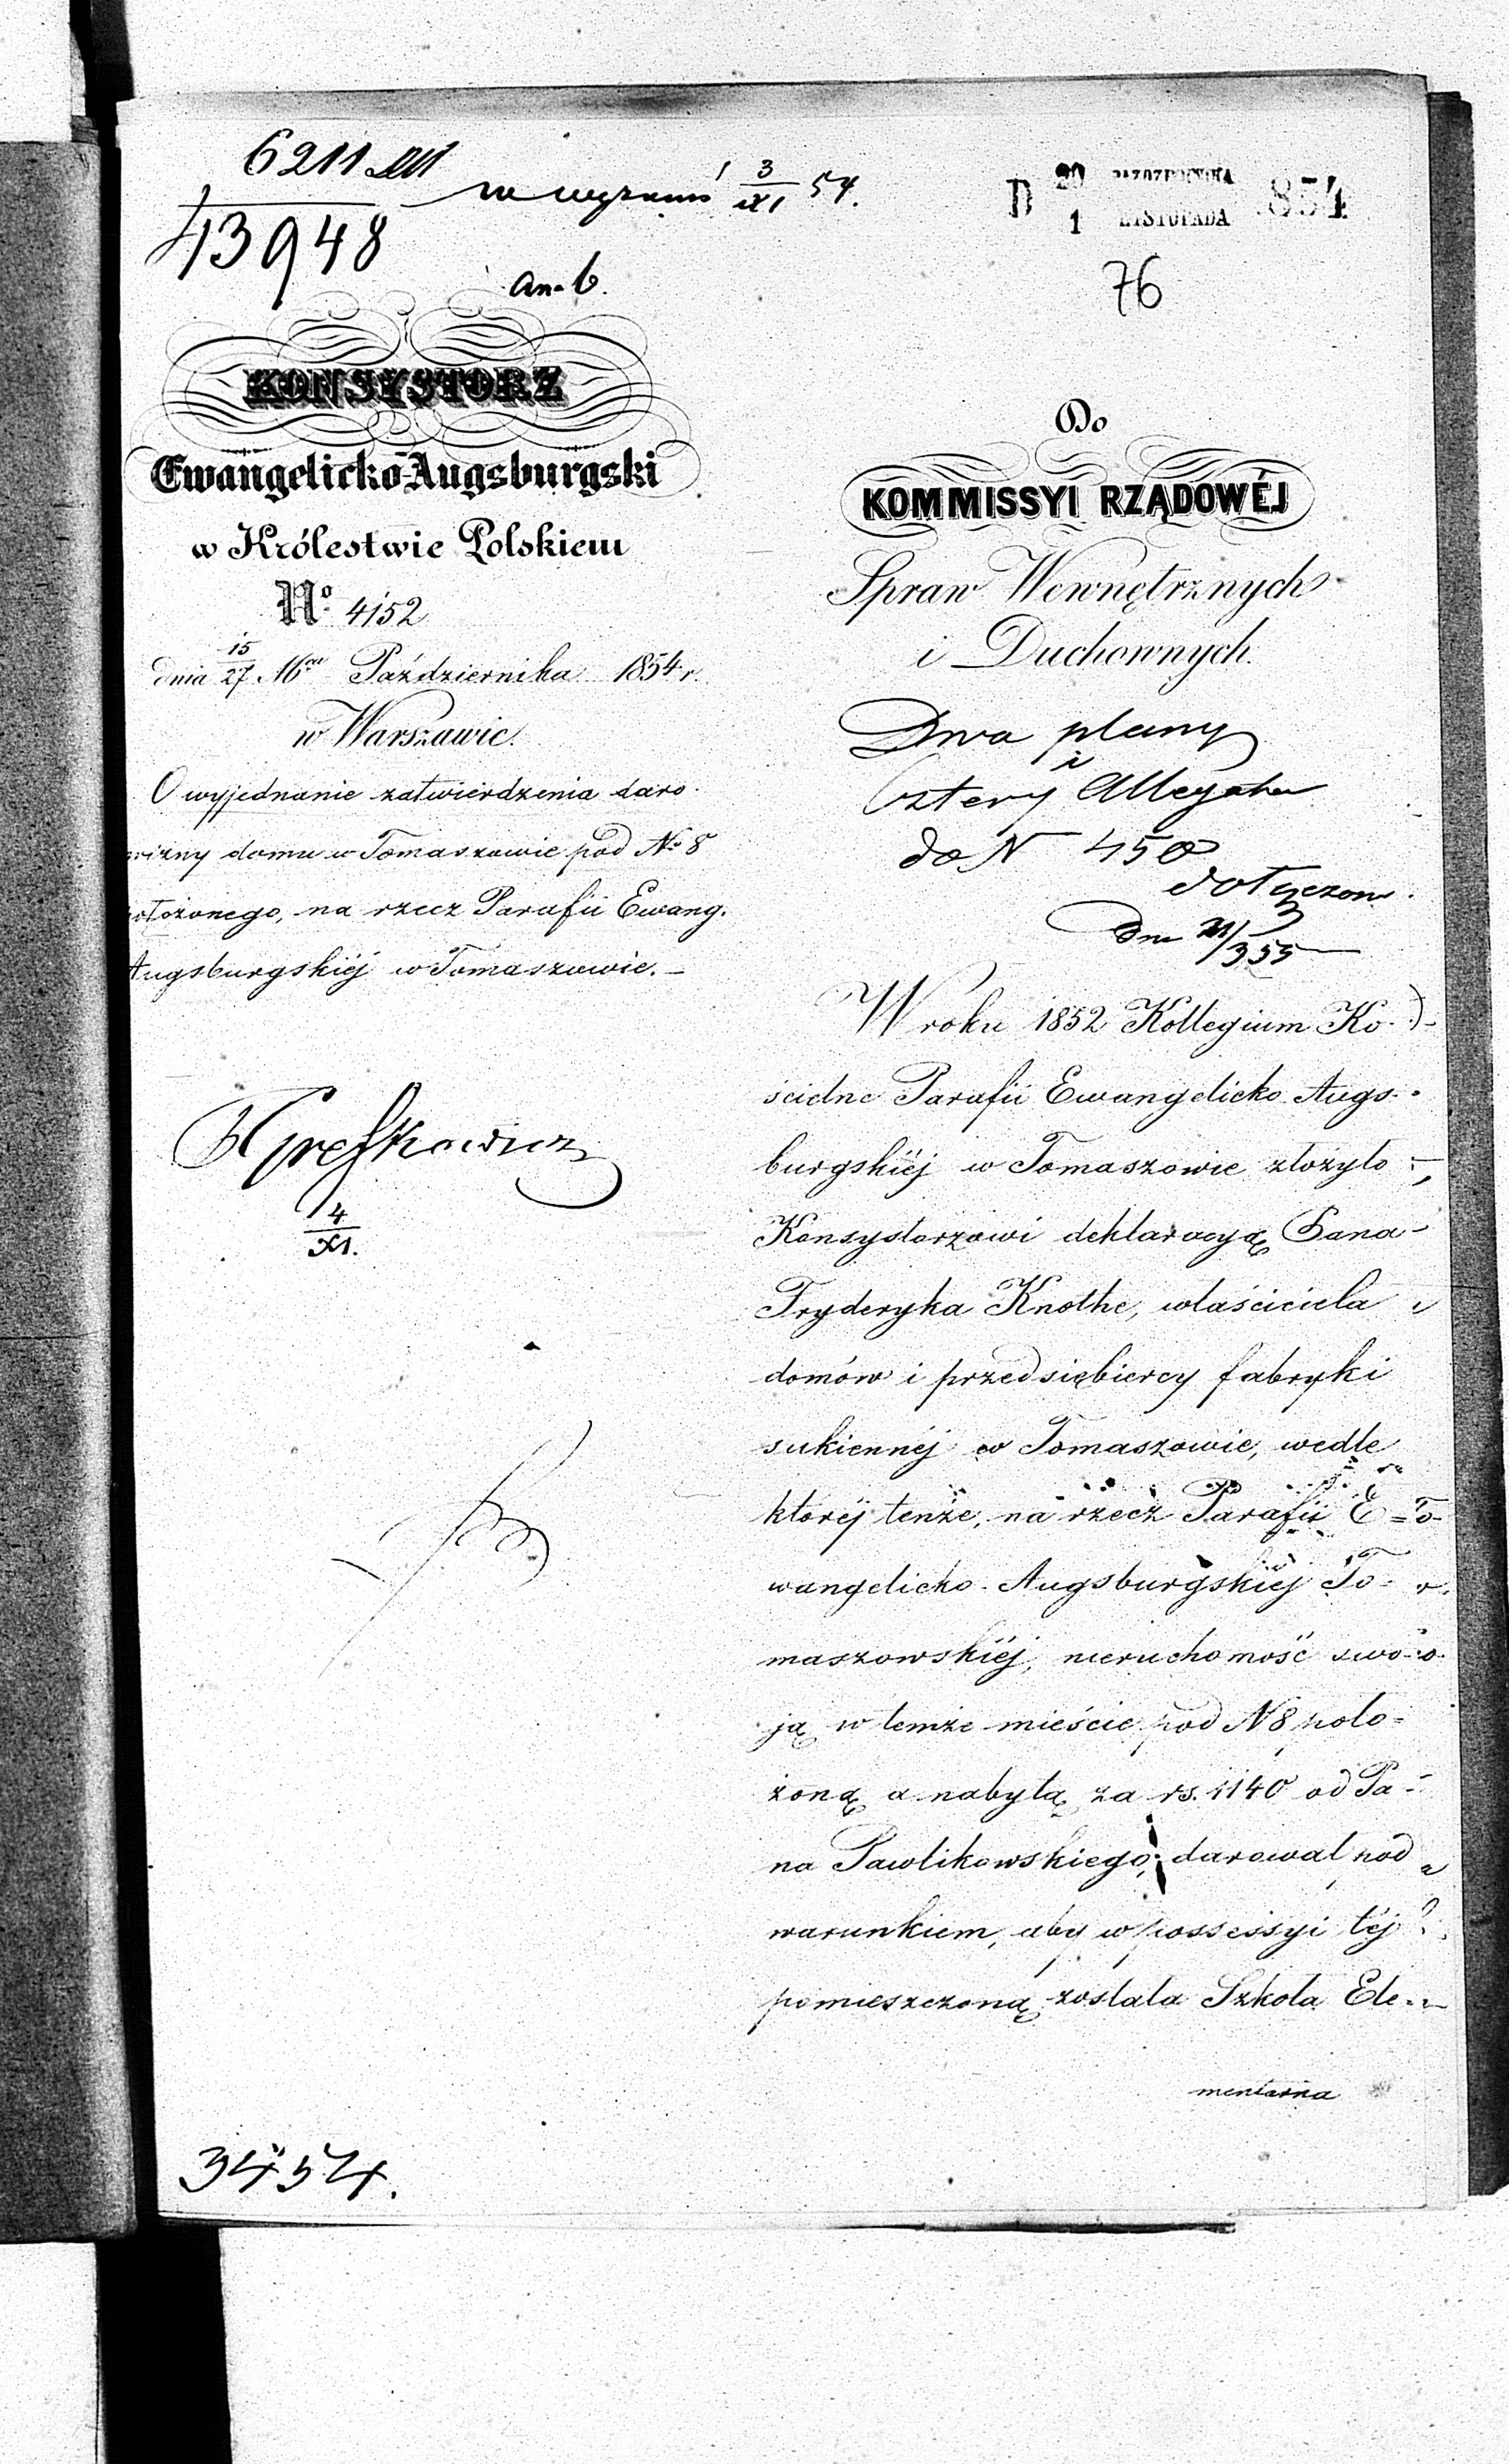 6211
13948
w 3/XI 54.
D 20 PAZDZIERNIKA
1 LISTOPADA 1854
76
an. 6.
KONSYSTORZ
Ewangelicko-Augsburgski
w Królestwie Polskiem
No. 4152
dnia 15/27 Mca Października 1854 r.
w Warszawie.
O wyjednanie zatwierdzenia daro-
wizny domu w Tomaszowie pod No 8
położonego, na rzecz Parafii Ewang.
Augsburgskiéj w Tomaszowie. –
4/XI.
3454.
Do
KOMMISSYI RZĄDOWÉJ
Spraw Wewnętrznych
i Duchownych.
Dwa plany
i
Cztery Allegata
do N 450
dołączono
W roku 1852 Kollegium Ko-
ścielne Parafii Ewangelicko Augs-
burgskiéj w Tomaszowie złożyło
Konsystorzowi deklaracyą Pana
Fryderyka Knothe, właściciela
domów i przedsiębiercy fabryki
sukiennéj w Tomaszowie, wedle
któréj tenże, na rzecz Parafii E=
wangelicko-Augsburgskiéj To-
maszowskiéj, nieruchomość swo-
ją w temże mieście pod N 8 poło=
żoną a nabytą za rs. 1140 od Pa-
na Pawlikowskiego; darował pod
warunkiem, aby w possessyi téj
pomieszczoną została Szkoła Ele-
mentarna